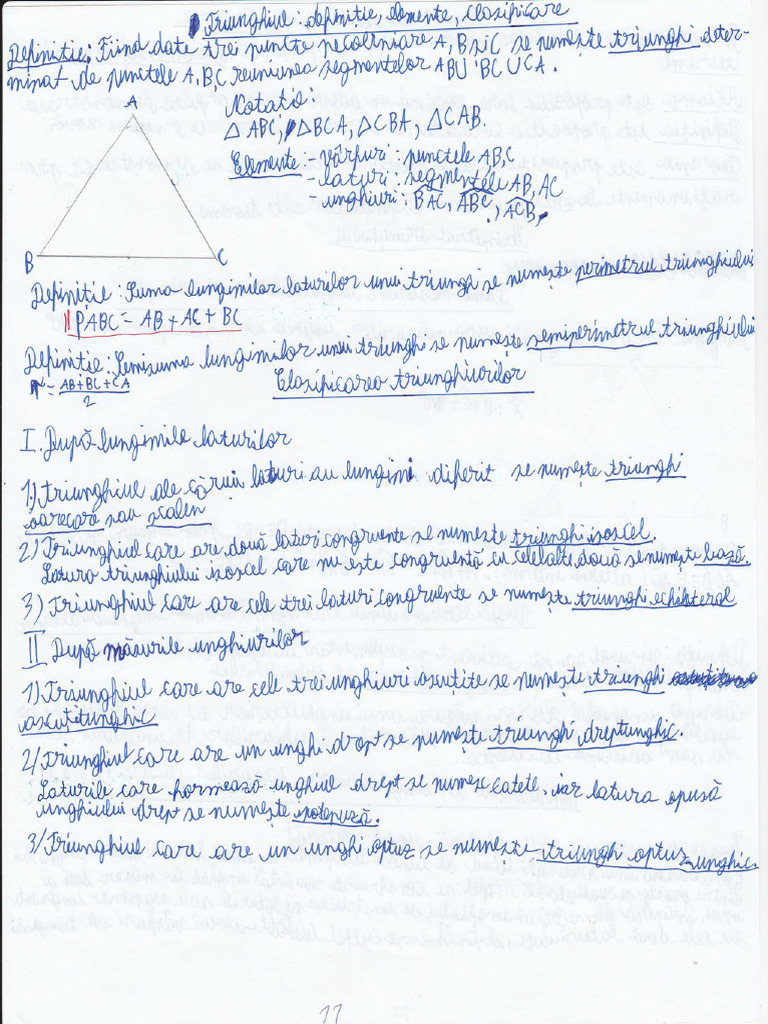 Triunghiul: definiție, elemente, clasificare
Definiție: Fiind date trei puncte necoliniare A, B și C se numește triunghi deter-
minat de punctele A, B, C reuniunea segmentelor AB U BC U CA.
A
Notații:
△ ABC, △BCA, △CBA, △CAB.
Elemente: - vârfuri: punctele A,B,C
- laturi: segmentele AB, AC
unghiuri: BAC, ABC, ACB.
B C
Definiție: Suma lungimilor laturilor unui triunghi se numește perimetrul triunghiului
PABC = AB + AC + BC
Definiție: Semisuma lungimilor unui triunghi se numește semiperimetrul triunghiului
p = AB + BC + CA / 2
Clasificarea triunghiurilor
I. După lungimile laturilor
1) Triunghiul ale cărui laturi au lungimi diferit se numește triunghi
oarecare sau scalen
2) Triunghiul care are două laturi congruente se numește triunghi isoscel.
Latura triunghiului isoscel care nu este congruentă cu celelalte două se numește bază.
3) Triunghiul care are cele trei laturi congruente se numește triunghi echilateral
II După măsurile unghiurilor
1) Triunghiul care are cele trei unghiuri ascuțite se numește triunghi
ascuțitunghic
2) Triunghiul care are un unghi drept se numește triunghi dreptunghic.
Laturile care formează unghiul drept se numesc catete, iar latura opusă
unghiului drept se numește ipotenuză.
3) Triunghiul care are un unghi optuz se numește triunghi optuzunghic
11